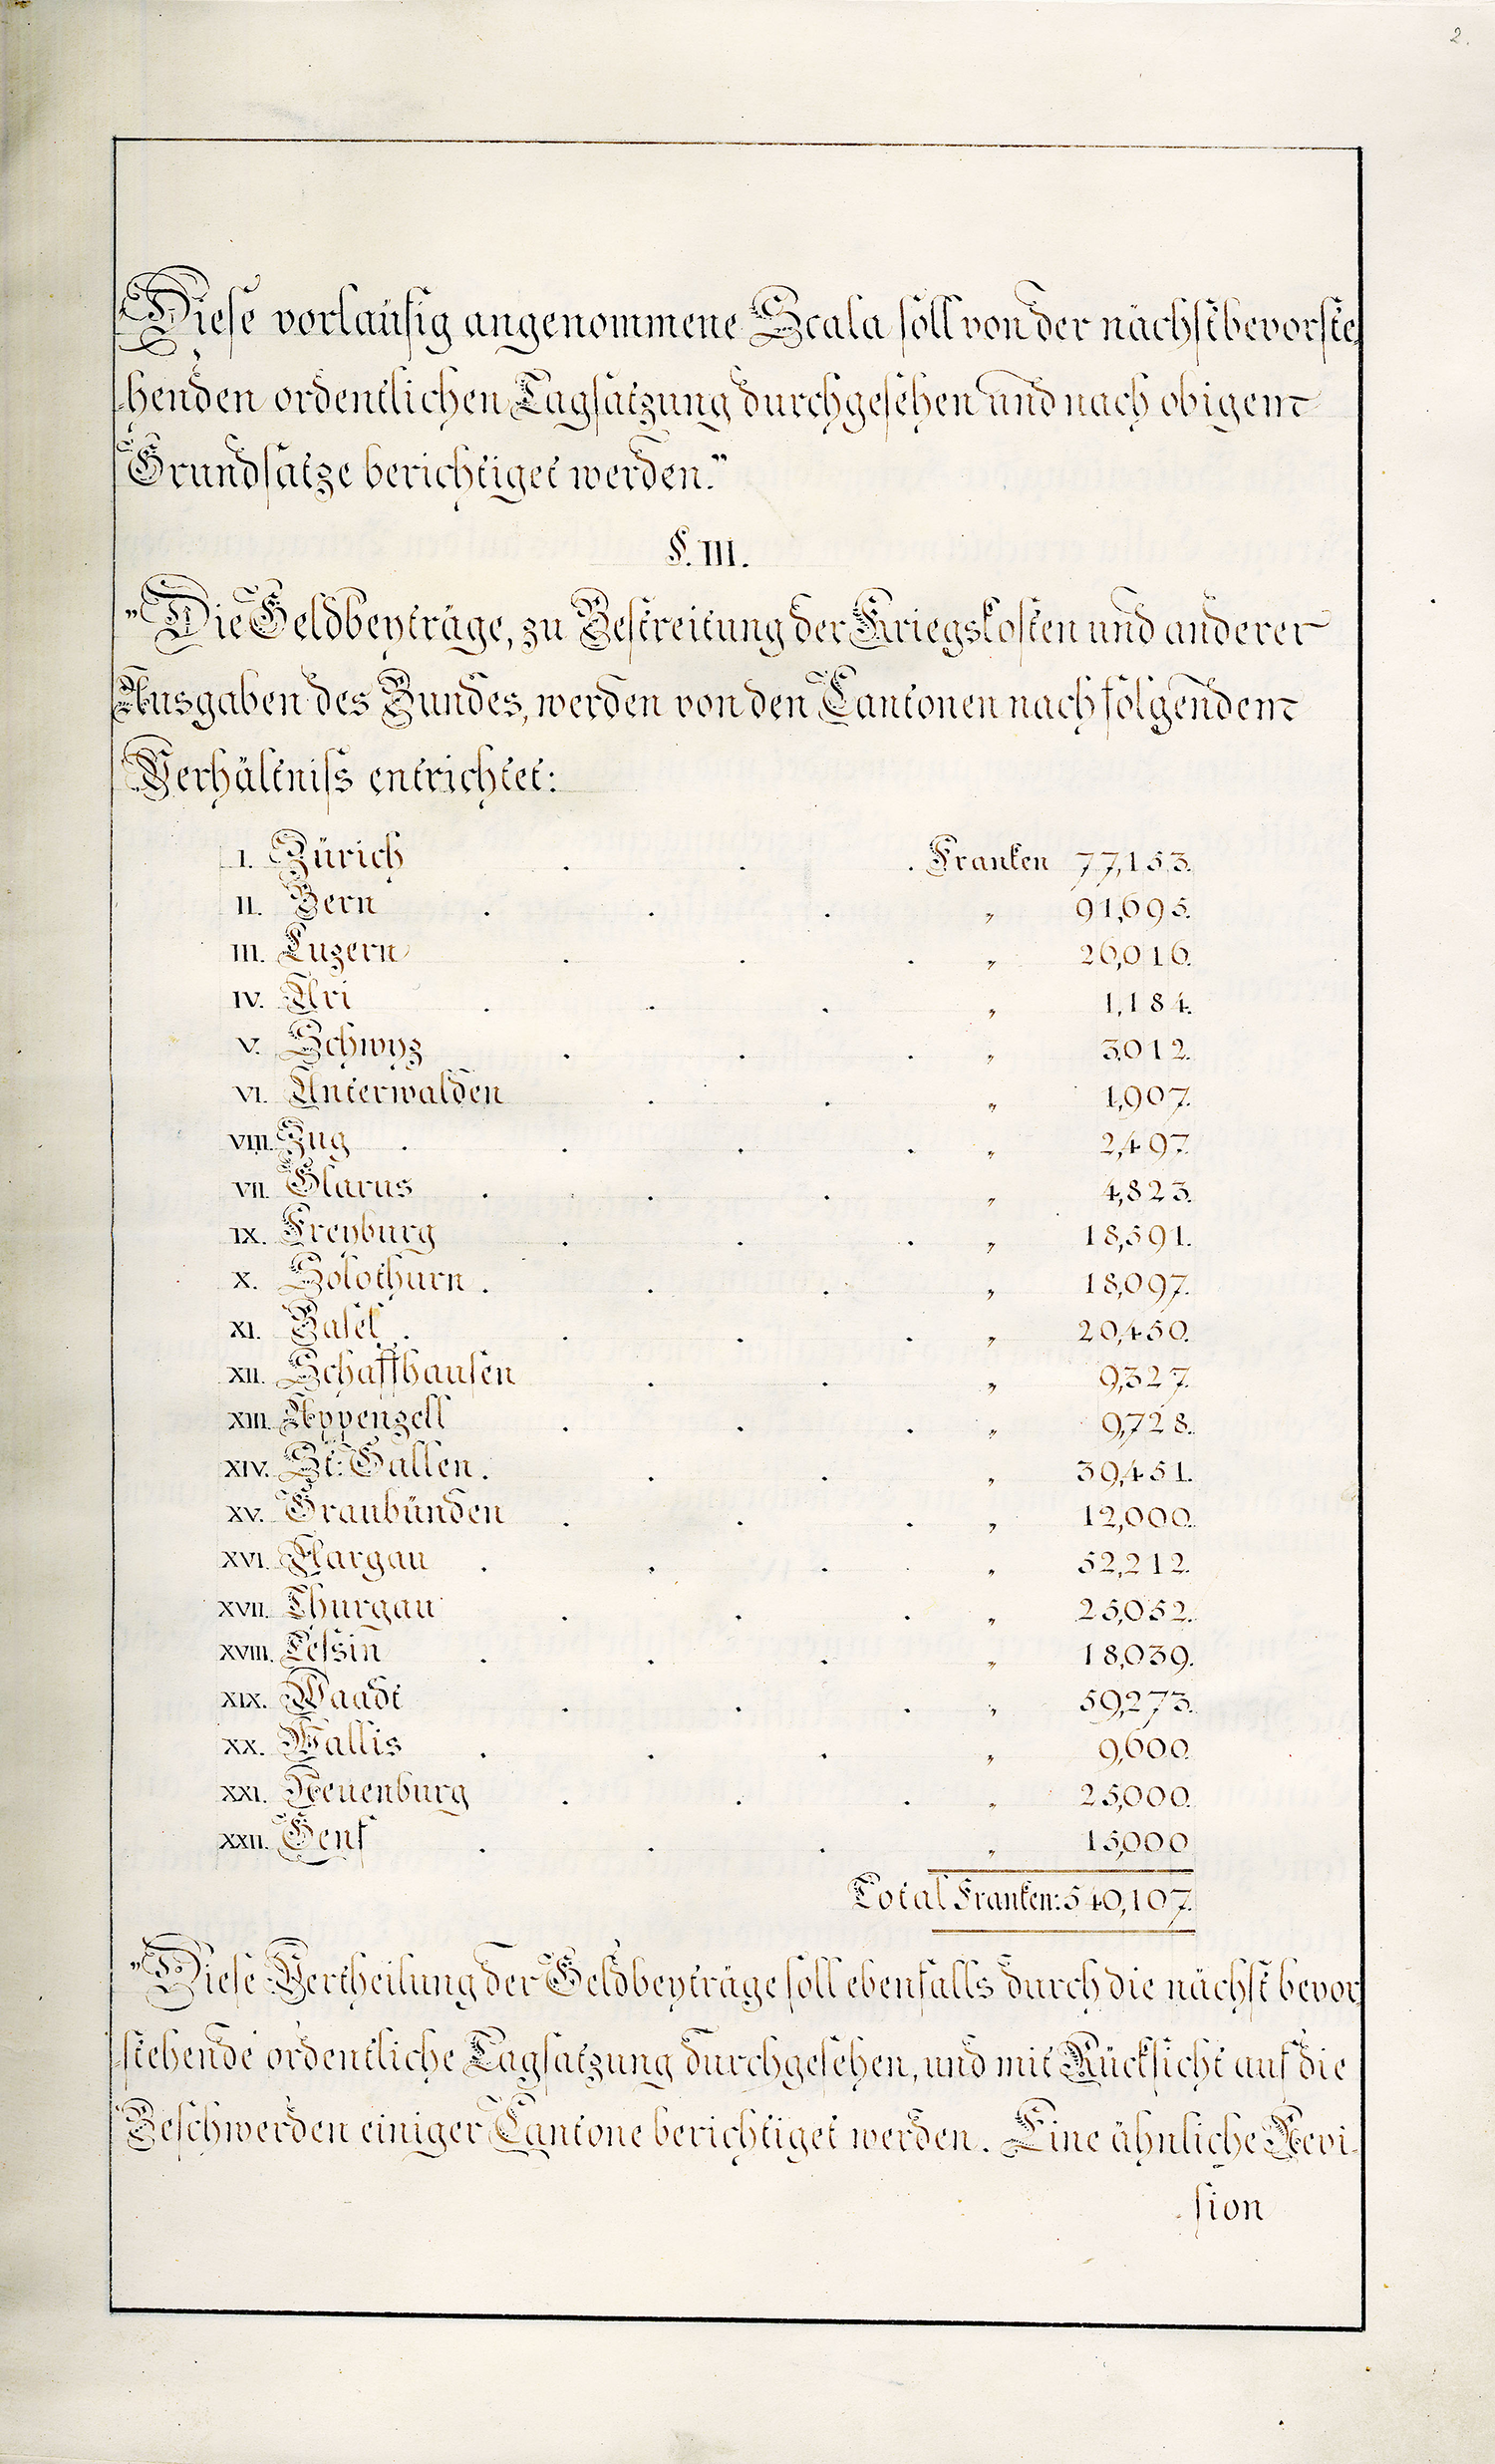 2.
Diese vorlaüfig angenommene Scala soll von der nächstbevorste-
henden ordentlichen Tagsatzung durchgesehen und nach obigem
Grundsatze berichtiget werden."
§. III.
"Die Geldbeyträge, zu Bestreitung der Kriegskosten und anderer
Ausgaben des Bundes, werden von den Cantonen nach folgendem
Verhältniss entrichtet:
I. Zürich . . . Franken 77,153.
II. Bern . . . " 91,695.
III. Luzern . . . " 26,016.
IV. Uri . . . " 1,184.
V. Schwyz . . . " 3,012.
VI. Unterwalden . . " 1,907.
VIII. Zug . . . . " 2,497.
VII. Glarus . . . " 4,823.
IX. Freyburg . . . " 18,591.
X. Solothurn . . . " 18,097.
XI. Basel . . . . " 20,450.
XII. Schaffhausen . . " 9,327.
XIII. Appenzell . . . " 9,728.
XIV. St: Gallen . . . " 39,451.
XV. Graubünden . . . " 12,000.
XVI. Aargau . . . " 52,212.
XVII. Thurgau . . . " 25,052.
XVIII. Tessin . . . " 18,039.
XIX. Waadt . . . " 59,273.
XX. Wallis . . . " 9,600.
XXI. Neuenburg . . . " 25,000.
XXII. Genf . . . " 15,000
Total Franken: 540,107.
"Diese Vertheilung der Geldbeyträge soll ebenfalls durch die nächst bevor-
stehende ordentliche Tagsatzung durchgesehen, und mit Rücksicht auf die
Beschwerden einiger Cantone berichtiget werden. Eine ähnliche Revi-
sion